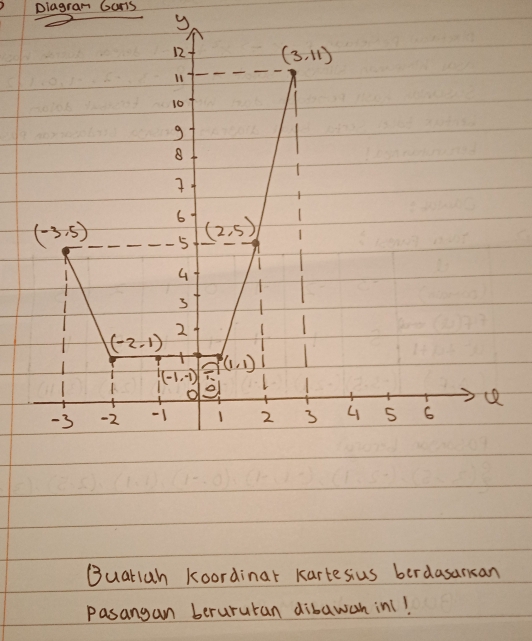 Diagram Garis
y
12
(3,11)
11
10
9
8
7
6
(-3,5)
(2,5)
5
4
3
2
(-2,1)
1
(1,1)
(-1,-1)
(0,-1)
0
-3 -2 -1 1 2 3 4 5 6
Buatlah koordinat kartesius berdasarkan
pasangan berurutan dibawah ini!